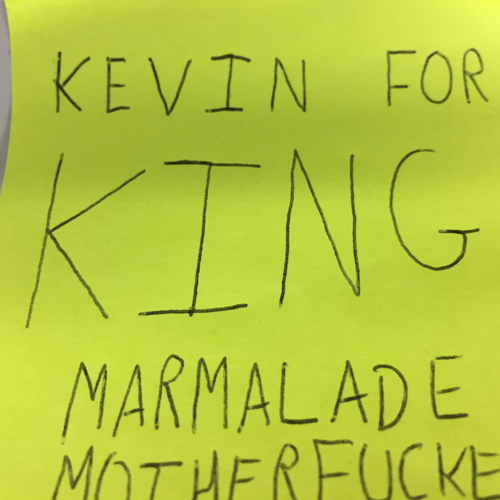 KEVIN FOR
KING
MARMALADE
MOTHERFUCKE